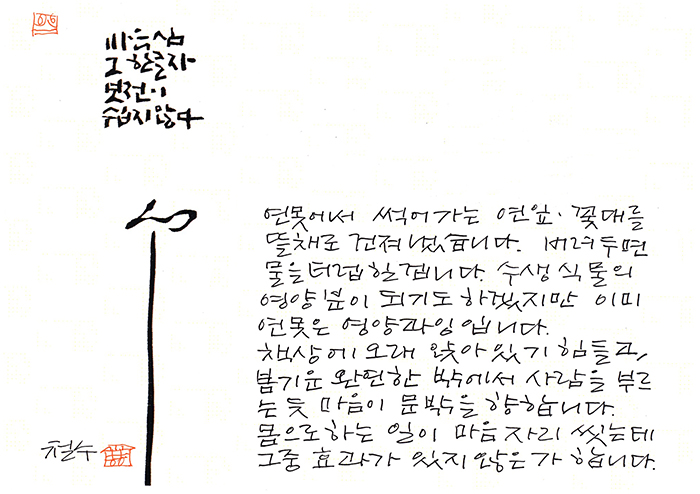 마음 심
그 한글자
쉽지않다
연못에서 썩어가는 연잎·꽃대를
뜰채로 건져냈습니다. 버려두면
물을 더럽힐겝니다. 수생식물의
영양분이 되기도 하겠지만 이미
연못은 영양과잉입니다.
책상에 오래 앉아있기 힘들고,
봄기운 완연한 밖에서 사람을 부르
는 듯 마음이 문밖을 향합니다.
몸으로 하는 일이 마음자리 씻는데
그중 효과가 있지 않은가 합니다.
心
철수